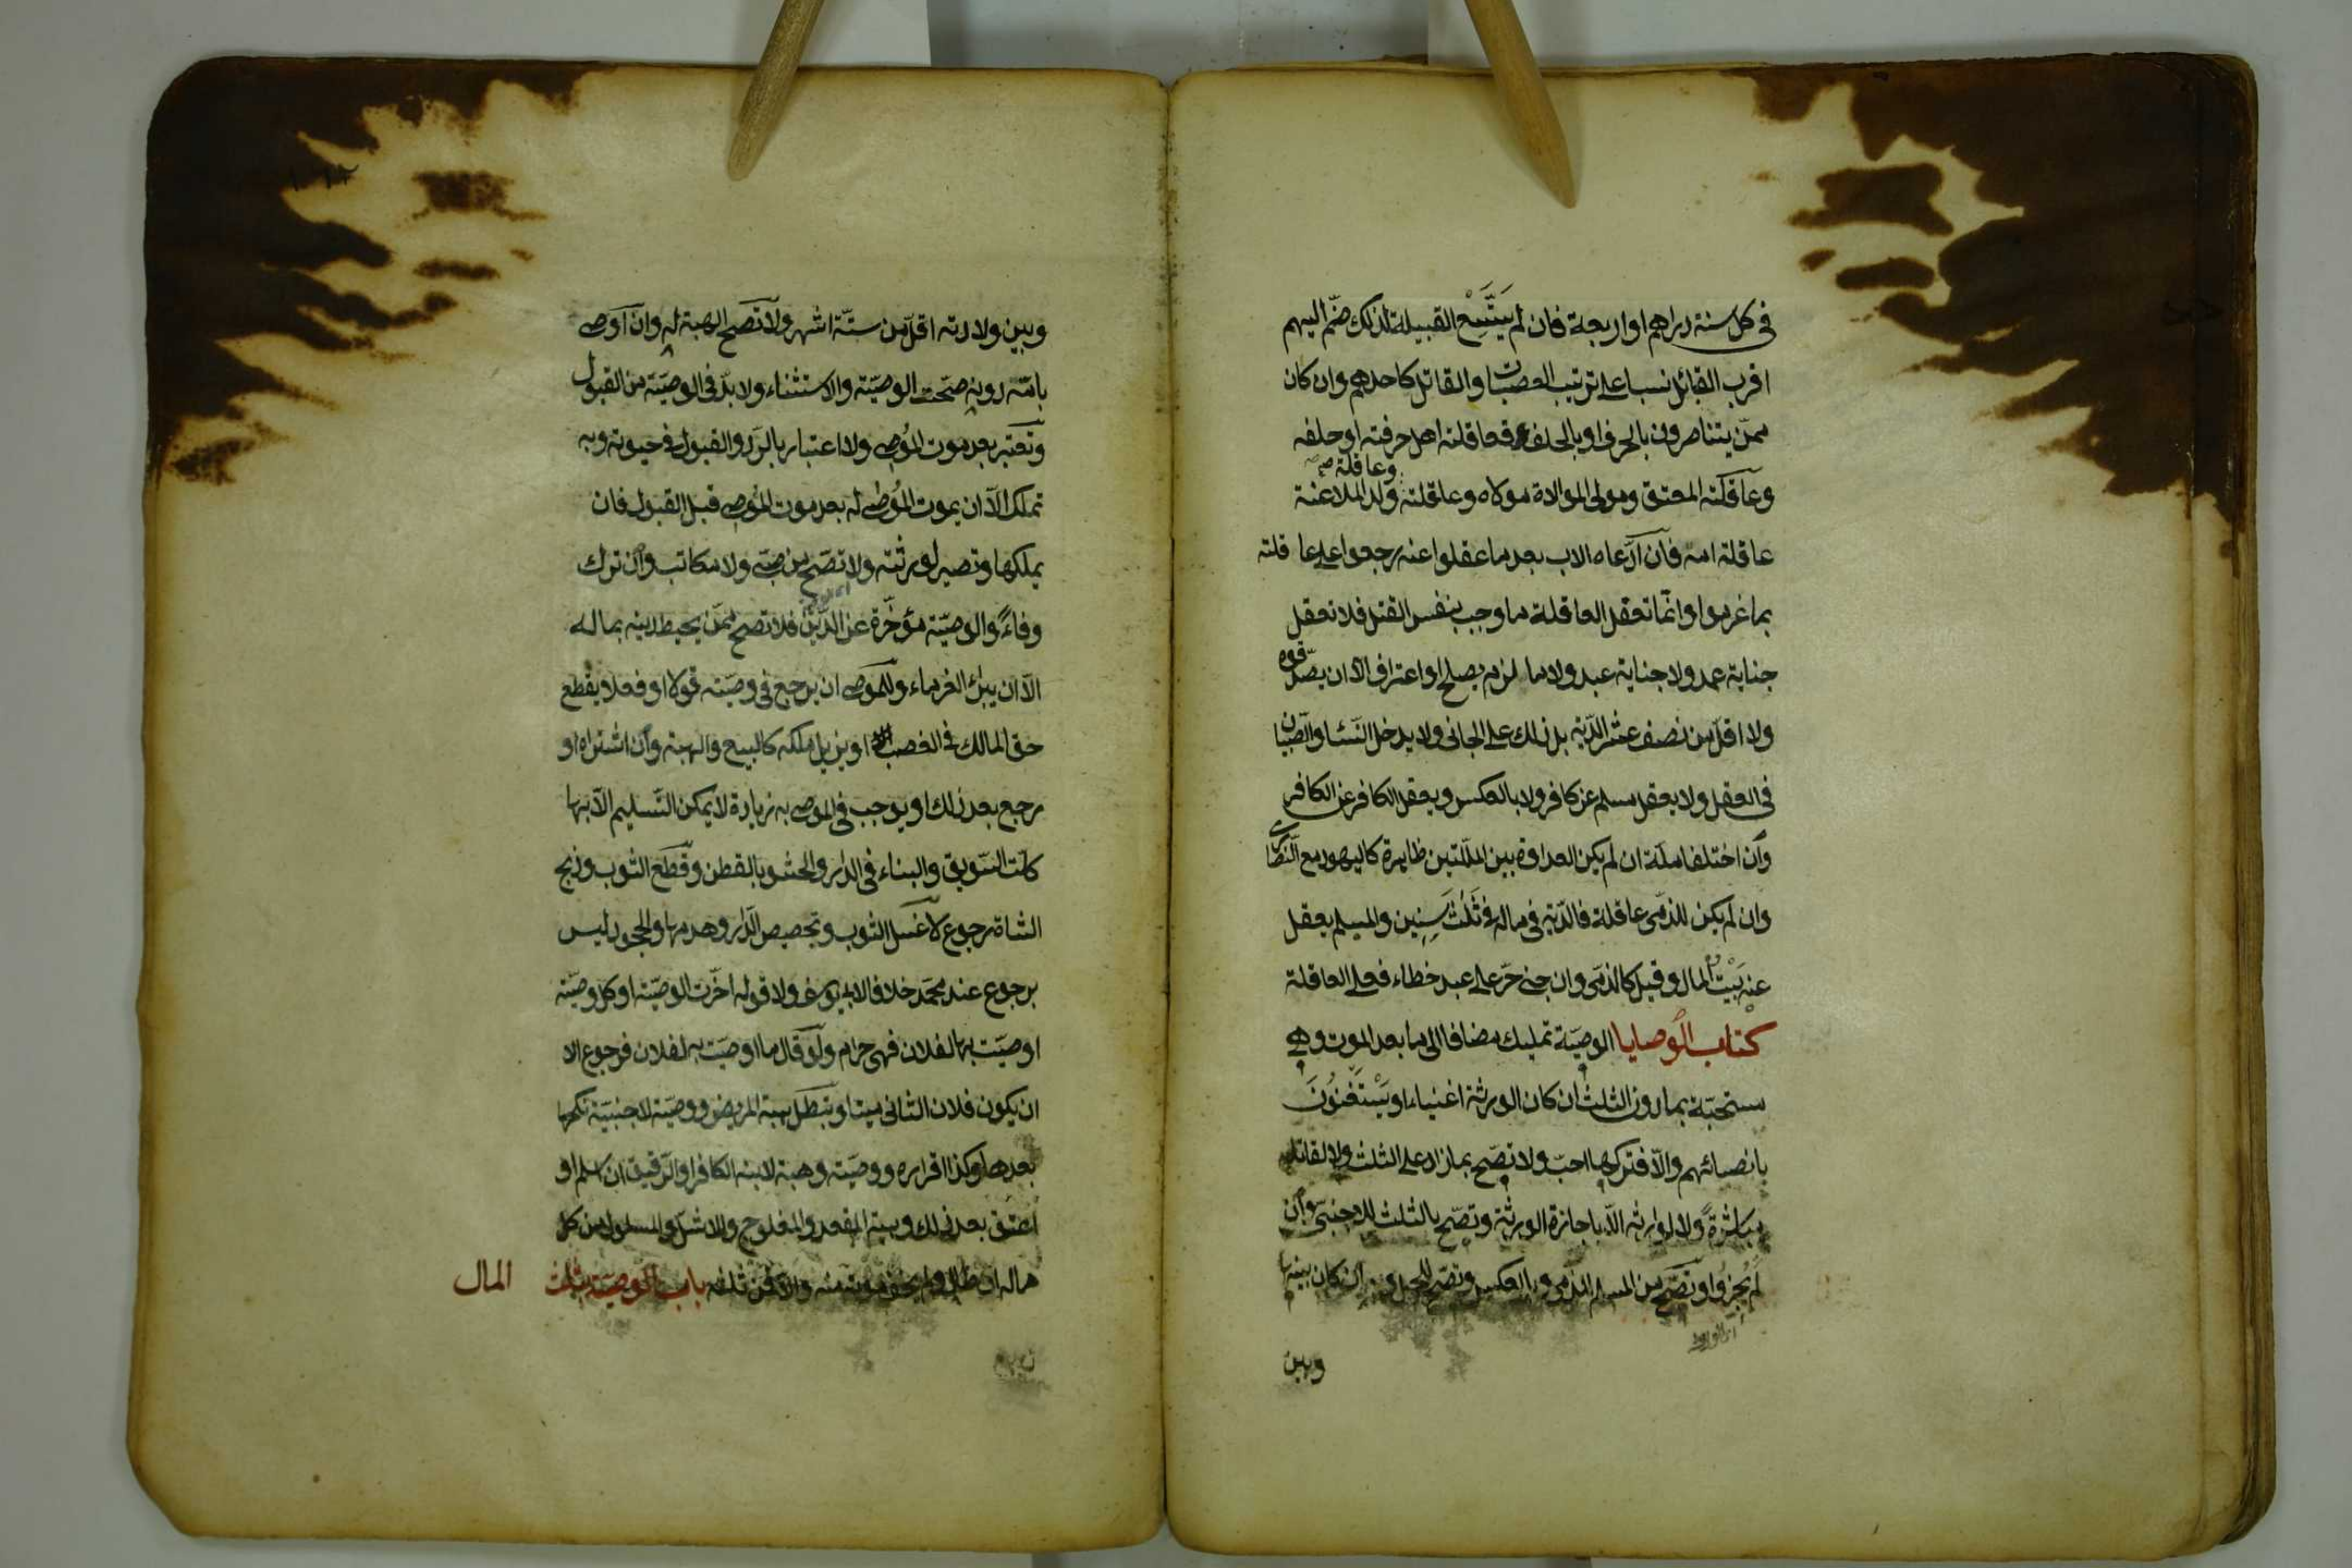 في كل سنة دراهم او اربعة فان لم يَتَّسِع القبيلة لذلك ضمّ اليهم
اقرب القبائل نسبا على ترتيب العصبات والقاتل كاحدهم وان كان
ممّن يتناصرون بالحرف او بالحلف فعاقلته اهل حرفته او حلفه
وعاقلة صح
وعاقلته المعتق ومولى الموالاة مولاه وعاقلته وولد الملاعنة
عاقلة امه فان ادّعاه الاب بعد ما عقلوا عنه رجعوا على عاقلته
بما غرموا وانّما تعقل العاقلة ما وجب بنفس القتل فلا تعقل
جناية عمد ولا جناية عبد ولا ما لزم بصلح او اعتراف الّا ان يصدّقوه
ولا اقلّ من نصف عشر الدّية بل ذلك على الجاني ولا يدخل النّساء والصّبيان
في العقل ولا يعقل مسلم عن كافر ولا بالعكس ويعقل الكافر عن الكافر
وان اختلفا ملّة ان لم يكن العداوة بين الملّتين ظاهرة كاليهود مع النّصارى
وان لم يكن للذمّي عاقلة فالدّية في ماله في ثَلٰث سِنِين والمسلم يعقل
عنه بَيْتُ المال وقيل كالذمّي وان جنى حرّ على عبد خطاء فعلى العاقلة
كتاب الوصايا الوصيّة تمليك مضاف الى ما بعد الموت وهي
مستحبّة بما دون الثلث ان كان الورثة اغنياء او يَسْتَغْنُونَ
بانصبائهم والّا فتركها احبّ ولا تصّح بما زاد على الثلث ولا لقاتله
مباشرةً ولا لوارثه الّا باجازة الورثة وتصّح بالثلث للاجنبيّ وان
لم يُجِيزُوا وتصّح من المسلم للذمّي وبالعكس وتصّح للحمل وبه ان كان بينها
وبين
وبين ولادته اقلّ من ستّة اشهر ولا تصحّ الهبة له وان اوصى
بامّة دونه صحّت الوصيّة والاستثناء ولا بدّ في الوصيّة من القبول
وتعتبر بعد موت المُوصي ولا اعتبار بالرّد والقبول في حيوته وبه
تملك الّا ان يموت المُوصى له بعد موت المُوصي قبل القبول فان
يملكها وتصير لورثته ولا تصّح من صبّي ولا مكاتب وان ترك
وفاءً والوصيّة مؤخّرة عن الدّين فلا تصح ممّن يحيط دينه بماله
الّا ان يبرئ الغرماء وللموصي ان يرجع في وصيّته قولا او فعلا يقطع
حق المالك في الغصب او يزيل ملكه كالبيع والهبة وان اشتراه او
رجع بعد ذلك او يوجب في الموصى به زيادة لا يمكن التّسليم الّا بها
كلتّ السّويق والبناء في الدّار والحشو بالقطن وقطع الثوب وذبح
الشاة رجوع لا غسل الثوب وتجصيص الدّار وهدمها والجحود ليس
برجوع عند محمّد خلافا لابي يوسف ولا قوله اخّرت الوصيّة او كل وصيّة
اوصيّت بها لفلان فهي حرام ولو قال ما اوصيّت به لفلان فرجوع الا
ان يكون فلان الثاني ميتا وتبطل هبة المريض ووصيّة لاجنبيّة نكحها
بعدها وكذا اقراره ووصيّة وهبة لابنه الكافر او الرّقيق ان اسلم او
اعتق بعد ذلك وهبة المقعد والمفلوج والاشلّ والمسلول من كل
ماله ان طال ولم يخف موته منه والّا فمن ثلثه باب الوصيّة بثلث المال